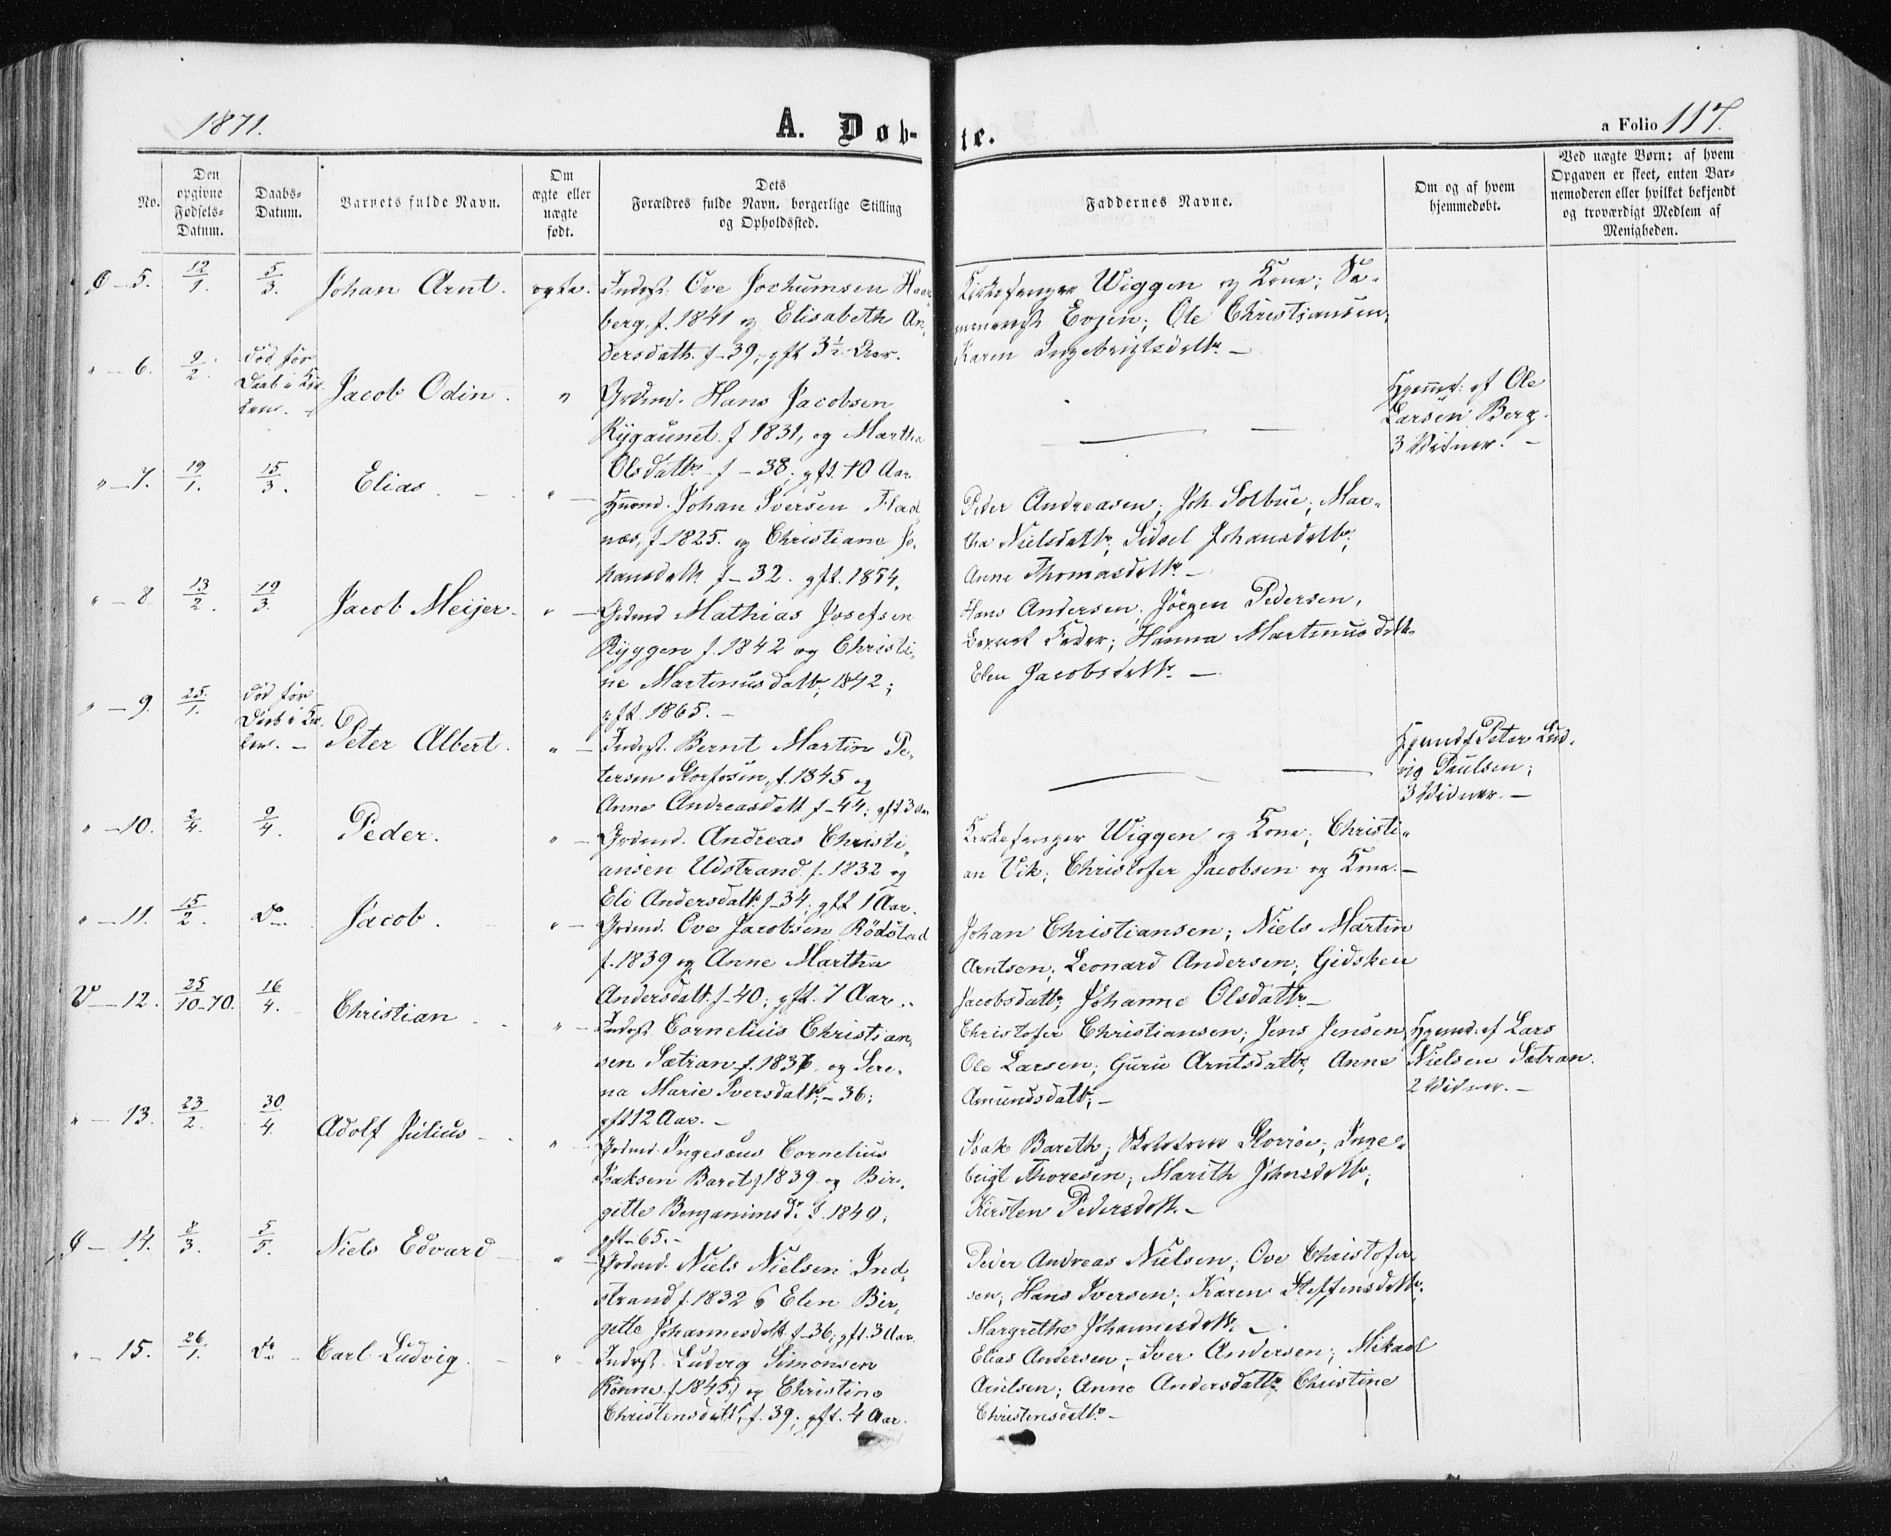 1871.
A. Døb-
te.
a Folio 117.
No.
Den opgivne Fødsels-Datum.
Daabs-Datum.
Barnets fulde Navn.
Om ægte eller uægte født.
Dets Forældres fulde Navn, borgerlige Stilling og Opholdssted.
Faddernes Navne.
Om og af hvem hjemmedøbt.
Ved uægte Børn: af hvem Opgaven er skeet, enten Barnemoderen eller hvilket bekjendt og troværdigt Medlem af Menigheden.
5. 12/1. 5/3. Johan Arnt. ægte. Inderst. Ove Jochumsen
berg, f. 1841 og Elisabeth An-
dersdatt. f. -39, gft 3½ Aar.
Kirkesanger Wiggen og Kone;
Evjen; Ole Christiansen;
Karen Ingebrigtsdatt. -
" - 6. 9/2. død før
Daab i Kir-
ken. - Jacob Odin. " Grdmd. Hans Jacobsen
Rygaunet f. 1831, og Martha
Olsdattr. f. -38; gft. 10 Aar
Hjemmd: af Ole
Larsen Berg.
3 Vidner. -
" - 7. 19/1. 15/3. Elias. " - Husmd. Johan Iversen Flad
næs, f. 1825. og Christiane Jo-
hansdatt f. -32. gft. 1854.
Peder Andreasen; Joh. Solbue; Mar-
tha Nielsdattr; Sidsel Johansdattr;
Anne Thomasdattr. -
" - 8. 13/2. 19/3. Jacob Meijer. " - Grdmd Mathias Josefsen
Ryggen f. 1842 og Christi-
ne Martinusdattr; 1842;
gft. 1865. -
Hans Andersen; Jörgen Pedersen,
Bernt Feder; Hanna Martinusdatt.
Elen Jacobsdattr. -
" - 9. 25/1. død før
Daab i Kir-
ken. - Peter Albert. " - Inderst. Bernt Martin Pe-
tersen Storfosen, f. 1845 og
Anne Andreasdatt f. -44; gft 3 Aar
Hjemmd af Peter Lud-
vig Paulsen;
3 Vidner. -
" - 10. 2/4. 9/4. Peder. " - Grdmd. Andreas Christi-
ansen Udstrand f. 1832 og
Eli Andersdatt. f. -34; gft 1 Aar.
Kirkesanger Wiggen og Kone; Christi-
an Vik; Christofer Jacobsen og Kone. -
" - 11. 15/2. Do. Jacob. " - Grdmd. Ove Jacobsen Rödstad
f. 1839 og Anne Martha
Andersdatt. f. -40; gft. 7 Aar.
Johan Christiansen; Niels Martin
Arntsen; Leonard Andersen; Gidsken
Jacobsdattr; Johanne Olsdattr. -
V - 12. 25/10-70. 16/4. Christian. " - Inderst Cornelius Christian-
sen Sætran f. 1836 og Sere-
na Marie Iversdattr; -36;
gft 12 Aar. -
Christofer Christiansen; Jens Jensen;
Ole Larsen; Guru Arntsdattr; Anne
Amundsdattr; -
Hjemmd: af Lars
Nielsen Sætran.
2 Vidner. -
" - 13. 23/2. 30/4. Adolf Julius - " - Grdmd. Ingesæus Cornelius
Isaksen Baret f 1839 og Bir-
gitte Benjaminsd. f. 1840;
gft -65. -
Isak Bareth; Storröe; Inge-
brigt Thoresen; Marith Johnsdattr;
Kirsten Pedersdatt. -
14. 8/3. 5/5. Niels Edvard - " - Grdmd. Niels Nielsen Ind-
strand f. 1832 & Elen Bir-
gitte Johannesdatt. f. -36; gft. 3 Aar.
Peder Andreas Nielsen; Ove Christofer-
sen; Hans Iversen; Karen Steffensdatt;
Margrethe Johannesdatt. -
" - 15. 26/1. Do - Carl Ludvig. " - Inderst. Ludvig Simonsen
Rönne f. 1845 og Christine
Christensdatt, f. 39; gft. 4 Aar.
Elias Andersen; Iver Andersen; Mikael
Arntsen; Anne Andersdatt; Christine
Christensdattr. -